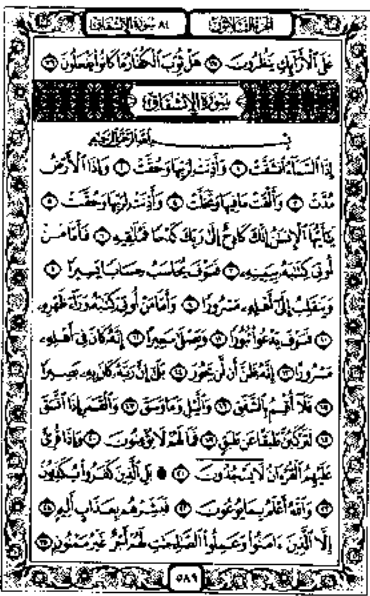 الجزء الثلاثون ٨٤ سورة الانشقاق
عَلَى الْأَرَائِكِ يَنظُرُونَ ۝٣٥ هَلْ ثُوِّبَ الْكُفَّارُ مَا كَانُوا يَفْعَلُونَ ۝٣٦
سورة الانشقاق
بسم الله الرحمن الرحيم
إِذَا السَّمَاءُ انشَقَّتْ ۝١ وَأَذِنَتْ لِرَبِّهَا وَحُقَّتْ ۝٢ وَإِذَا الْأَرْضُ
مُدَّتْ ۝٣ وَأَلْقَتْ مَا فِيهَا وَتَخَلَّتْ ۝٤ وَأَذِنَتْ لِرَبِّهَا وَحُقَّتْ ۝٥
يَا أَيُّهَا الْإِنسَانُ إِنَّكَ كَادِحٌ إِلَى رَبِّكَ كَدْحًا فَمُلَاقِيهِ ۝٦ فَأَمَّا مَنْ
أُوتِيَ كِتَابَهُ بِيَمِينِهِ ۝٧ فَسَوْفَ يُحَاسَبُ حِسَابًا يَسِيرًا ۝٨
وَيَنقَلِبُ إِلَى أَهْلِهِ مَسْرُورًا ۝٩ وَأَمَّا مَنْ أُوتِيَ كِتَابَهُ وَرَاءَ ظَهْرِهِ
۝١٠ فَسَوْفَ يَدْعُو ثُبُورًا ۝١١ وَيَصْلَى سَعِيرًا ۝١٢ إِنَّهُ كَانَ فِي أَهْلِهِ
مَسْرُورًا ۝١٣ إِنَّهُ ظَنَّ أَن لَّن يَحُورَ ۝١٤ بَلَى إِنَّ رَبَّهُ كَانَ بِهِ بَصِيرًا
۝١٥ فَلَا أُقْسِمُ بِالشَّفَقِ ۝١٦ وَاللَّيْلِ وَمَا وَسَقَ ۝١٧ وَالْقَمَرِ إِذَا اتَّسَقَ
۝١٨ لَتَرْكَبُنَّ طَبَقًا عَن طَبَقٍ ۝١٩ فَمَا لَهُمْ لَا يُؤْمِنُونَ ۝٢٠ وَإِذَا قُرِئَ
عَلَيْهِمُ الْقُرْآنُ لَا يَسْجُدُونَ ۝٢١ بَلِ الَّذِينَ كَفَرُوا يُكَذِّبُونَ
۝٢٢ وَاللَّهُ أَعْلَمُ بِمَا يُوعُونَ ۝٢٣ فَبَشِّرْهُم بِعَذَابٍ أَلِيمٍ ۝٢٤
إِلَّا الَّذِينَ آمَنُوا وَعَمِلُوا الصَّالِحَاتِ لَهُمْ أَجْرٌ غَيْرُ مَمْنُونٍ ۝٢٥
٥٨٩